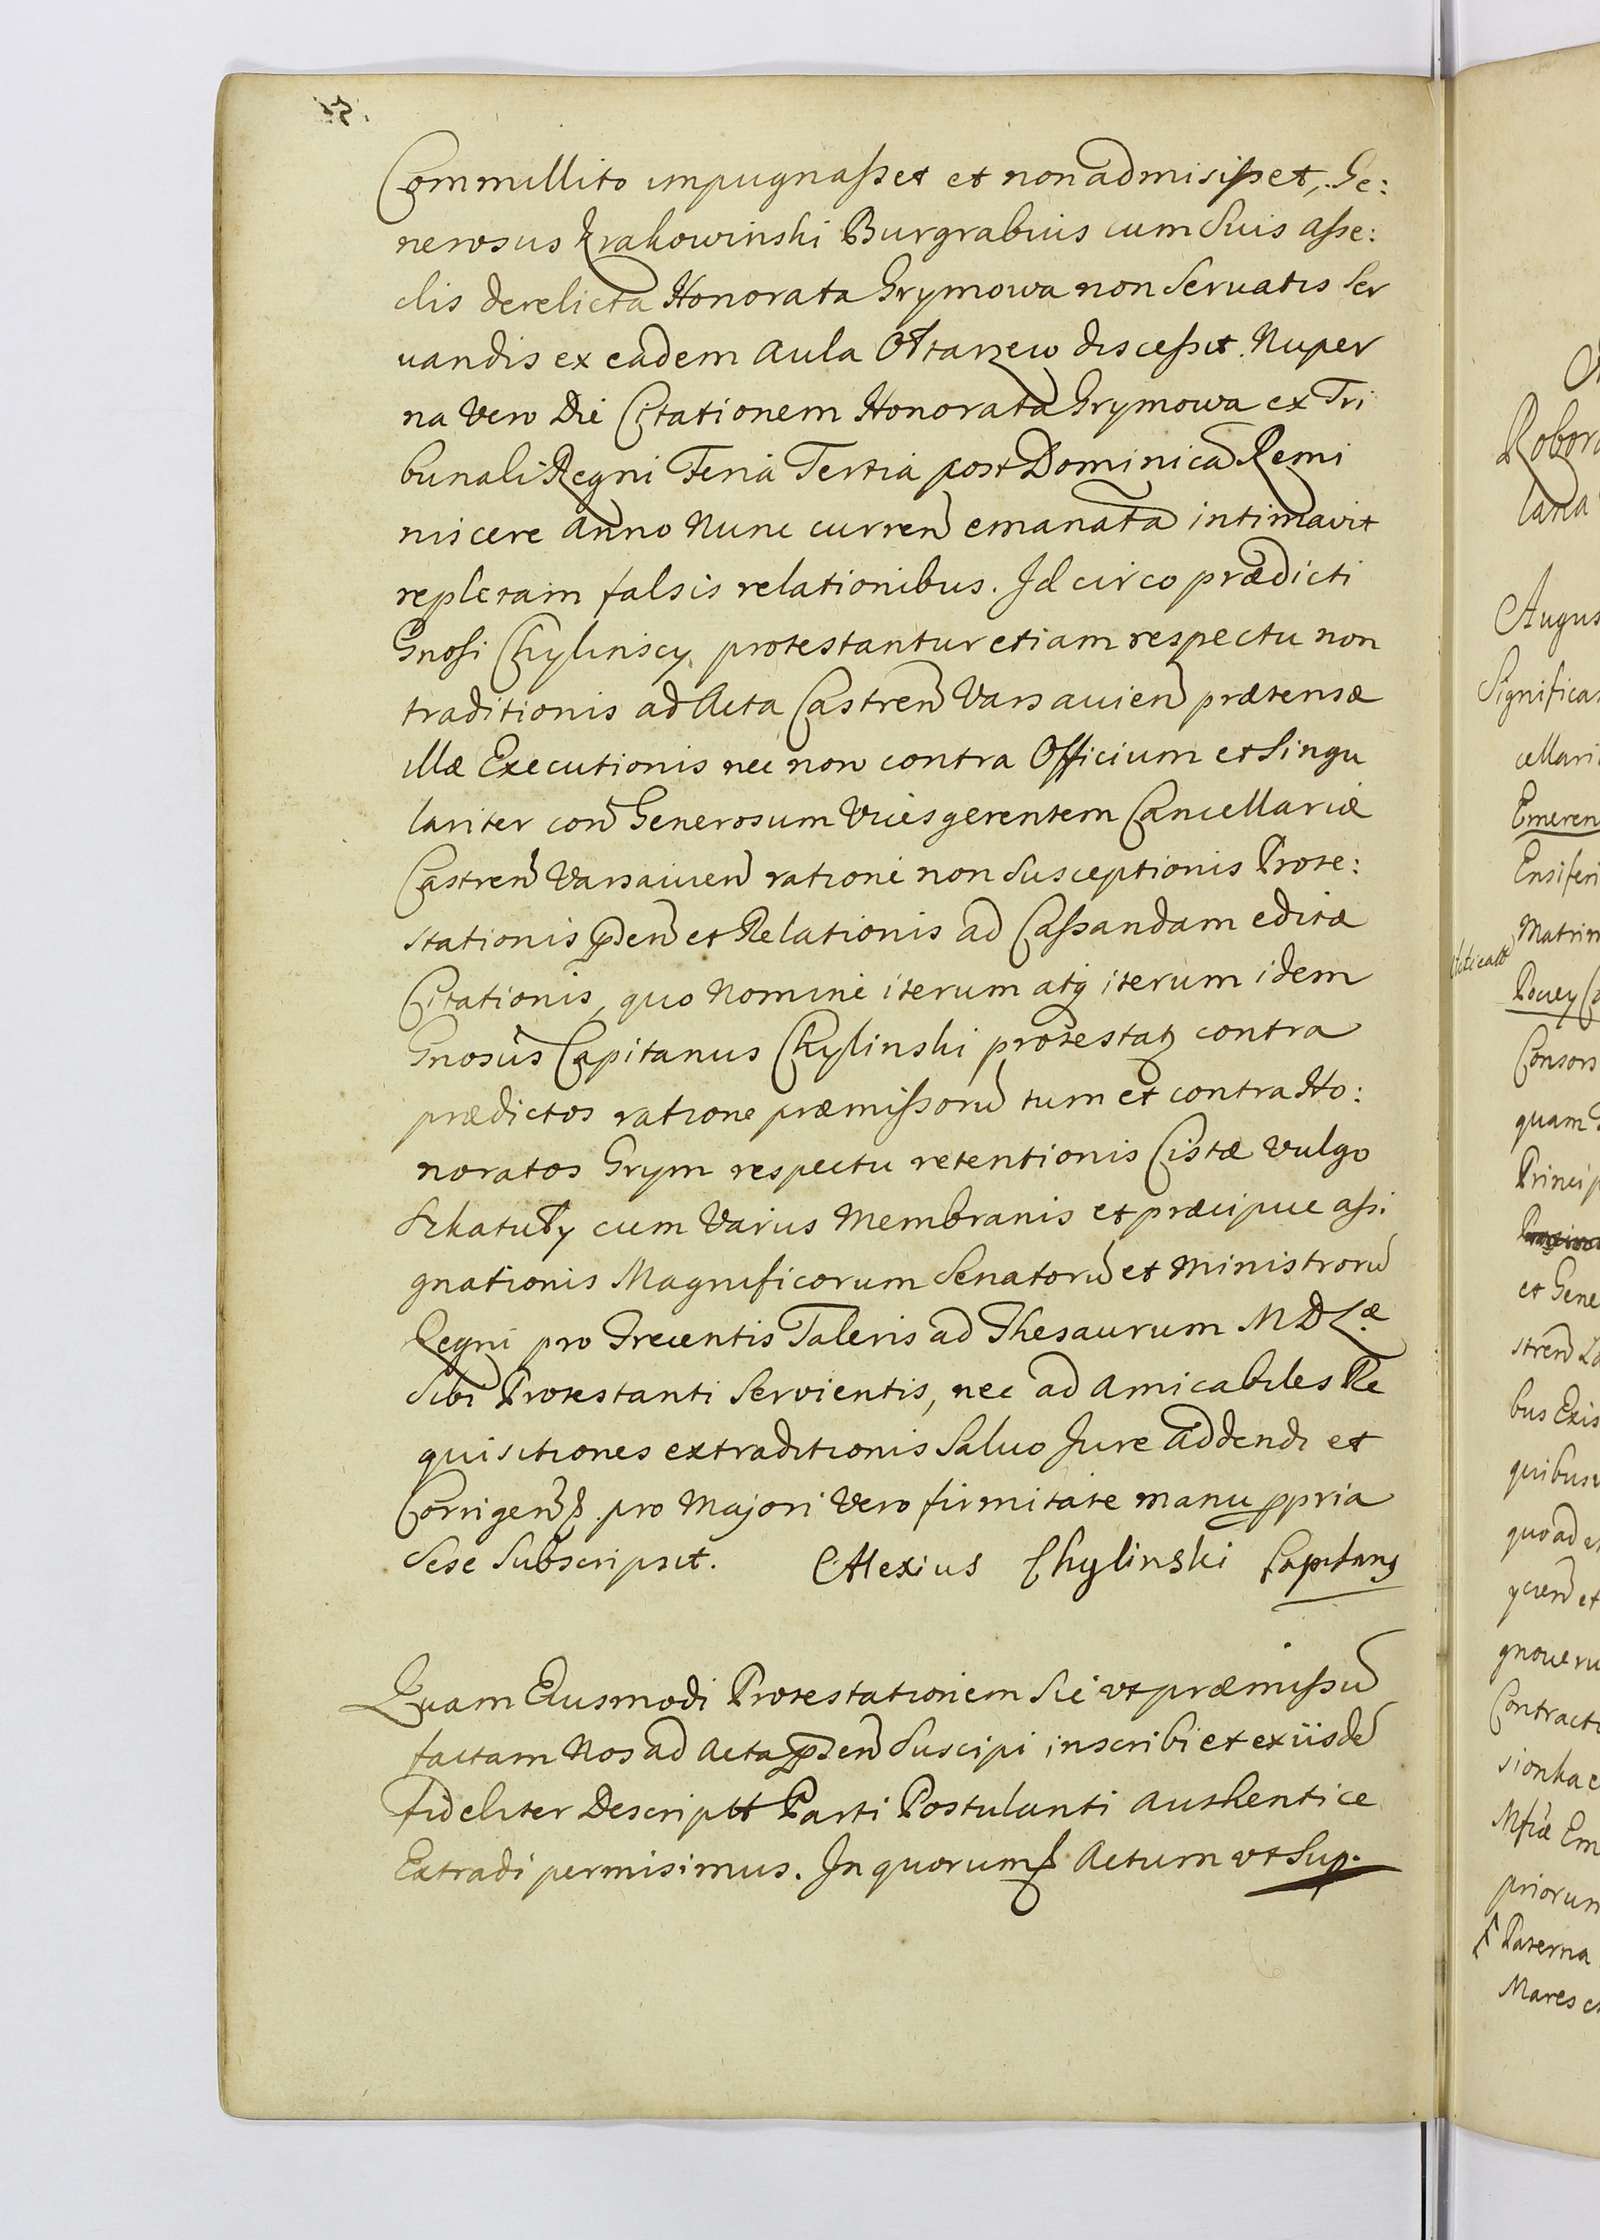 Commillito impugnaſset et non admisiſset, Ge:
nerosus Krakowinski Burgrabius cum Suis aſse:
clis derelicta Honorata Grymowa non Servatis Ser
uandis ex eadem Aula Ottarzew disceſsit. Nuper
na Vero Die Citationem Honorata Grymowa ex Tri
bunali Regni Feria Tertia post Dominica Remi
niscere Anno Nunc curren emanata intimavit
repletam falsis relationibus. Idcirco prædicti
Gnoſi Chylinscy protestantur etiam respectu non
traditionis ad Acta Castren Varsauien prætensæ
illæ Executionis nec non contra Officium et Singu
lariter con Generosum Vicesgerentem Cancellariæ
Castren Varsauien rationi non Susceptionis Prote:
stationis pden et Relationis ad Caſsandam editæ
Citationis, quo Nomine iterum atq iterum idem
Gnosus Capitanus Chylinski protestatq contra
prædictos ratione præmiſsoru tum et contra Ho:
noratos Grym respectu retentionis Cistæ Vulgo
Szkatuły cum Varius Membranis et præcipue aſsi
gnationis Magnificorum Senatoru et Ministroru
Regni pro Trecentis Taleris ad Thesaurum M D Læ
Sibi Protestanti Servientis, nec ad Amicabiles Re
quisitiones extraditionis Saluo Jure addendi et
Corrigen. pro Majori Vero firmitate manu ppria
Sese Subscripsit. Alexius Chylinski Capitang
Quam Eiusmodi Protestationem Sic vt præmiſsu
factam Nos ad Acta pden Suscipi inscribi et ex iisde
fideliter Descriptt Parti Postulanti Authentice
Extradi permisimus. In quorum Actum vt Sup.
Robor
lana
Augus
Significa
cellari
Emeren
Ensiferi
Matrim
Pociey Ca
Consors
quam
Princip
et Gene
stren
bus Exis
quibus
quoad et
et
gnoueru
Contract
Mficæ Em
priorum
Paterna
Mares